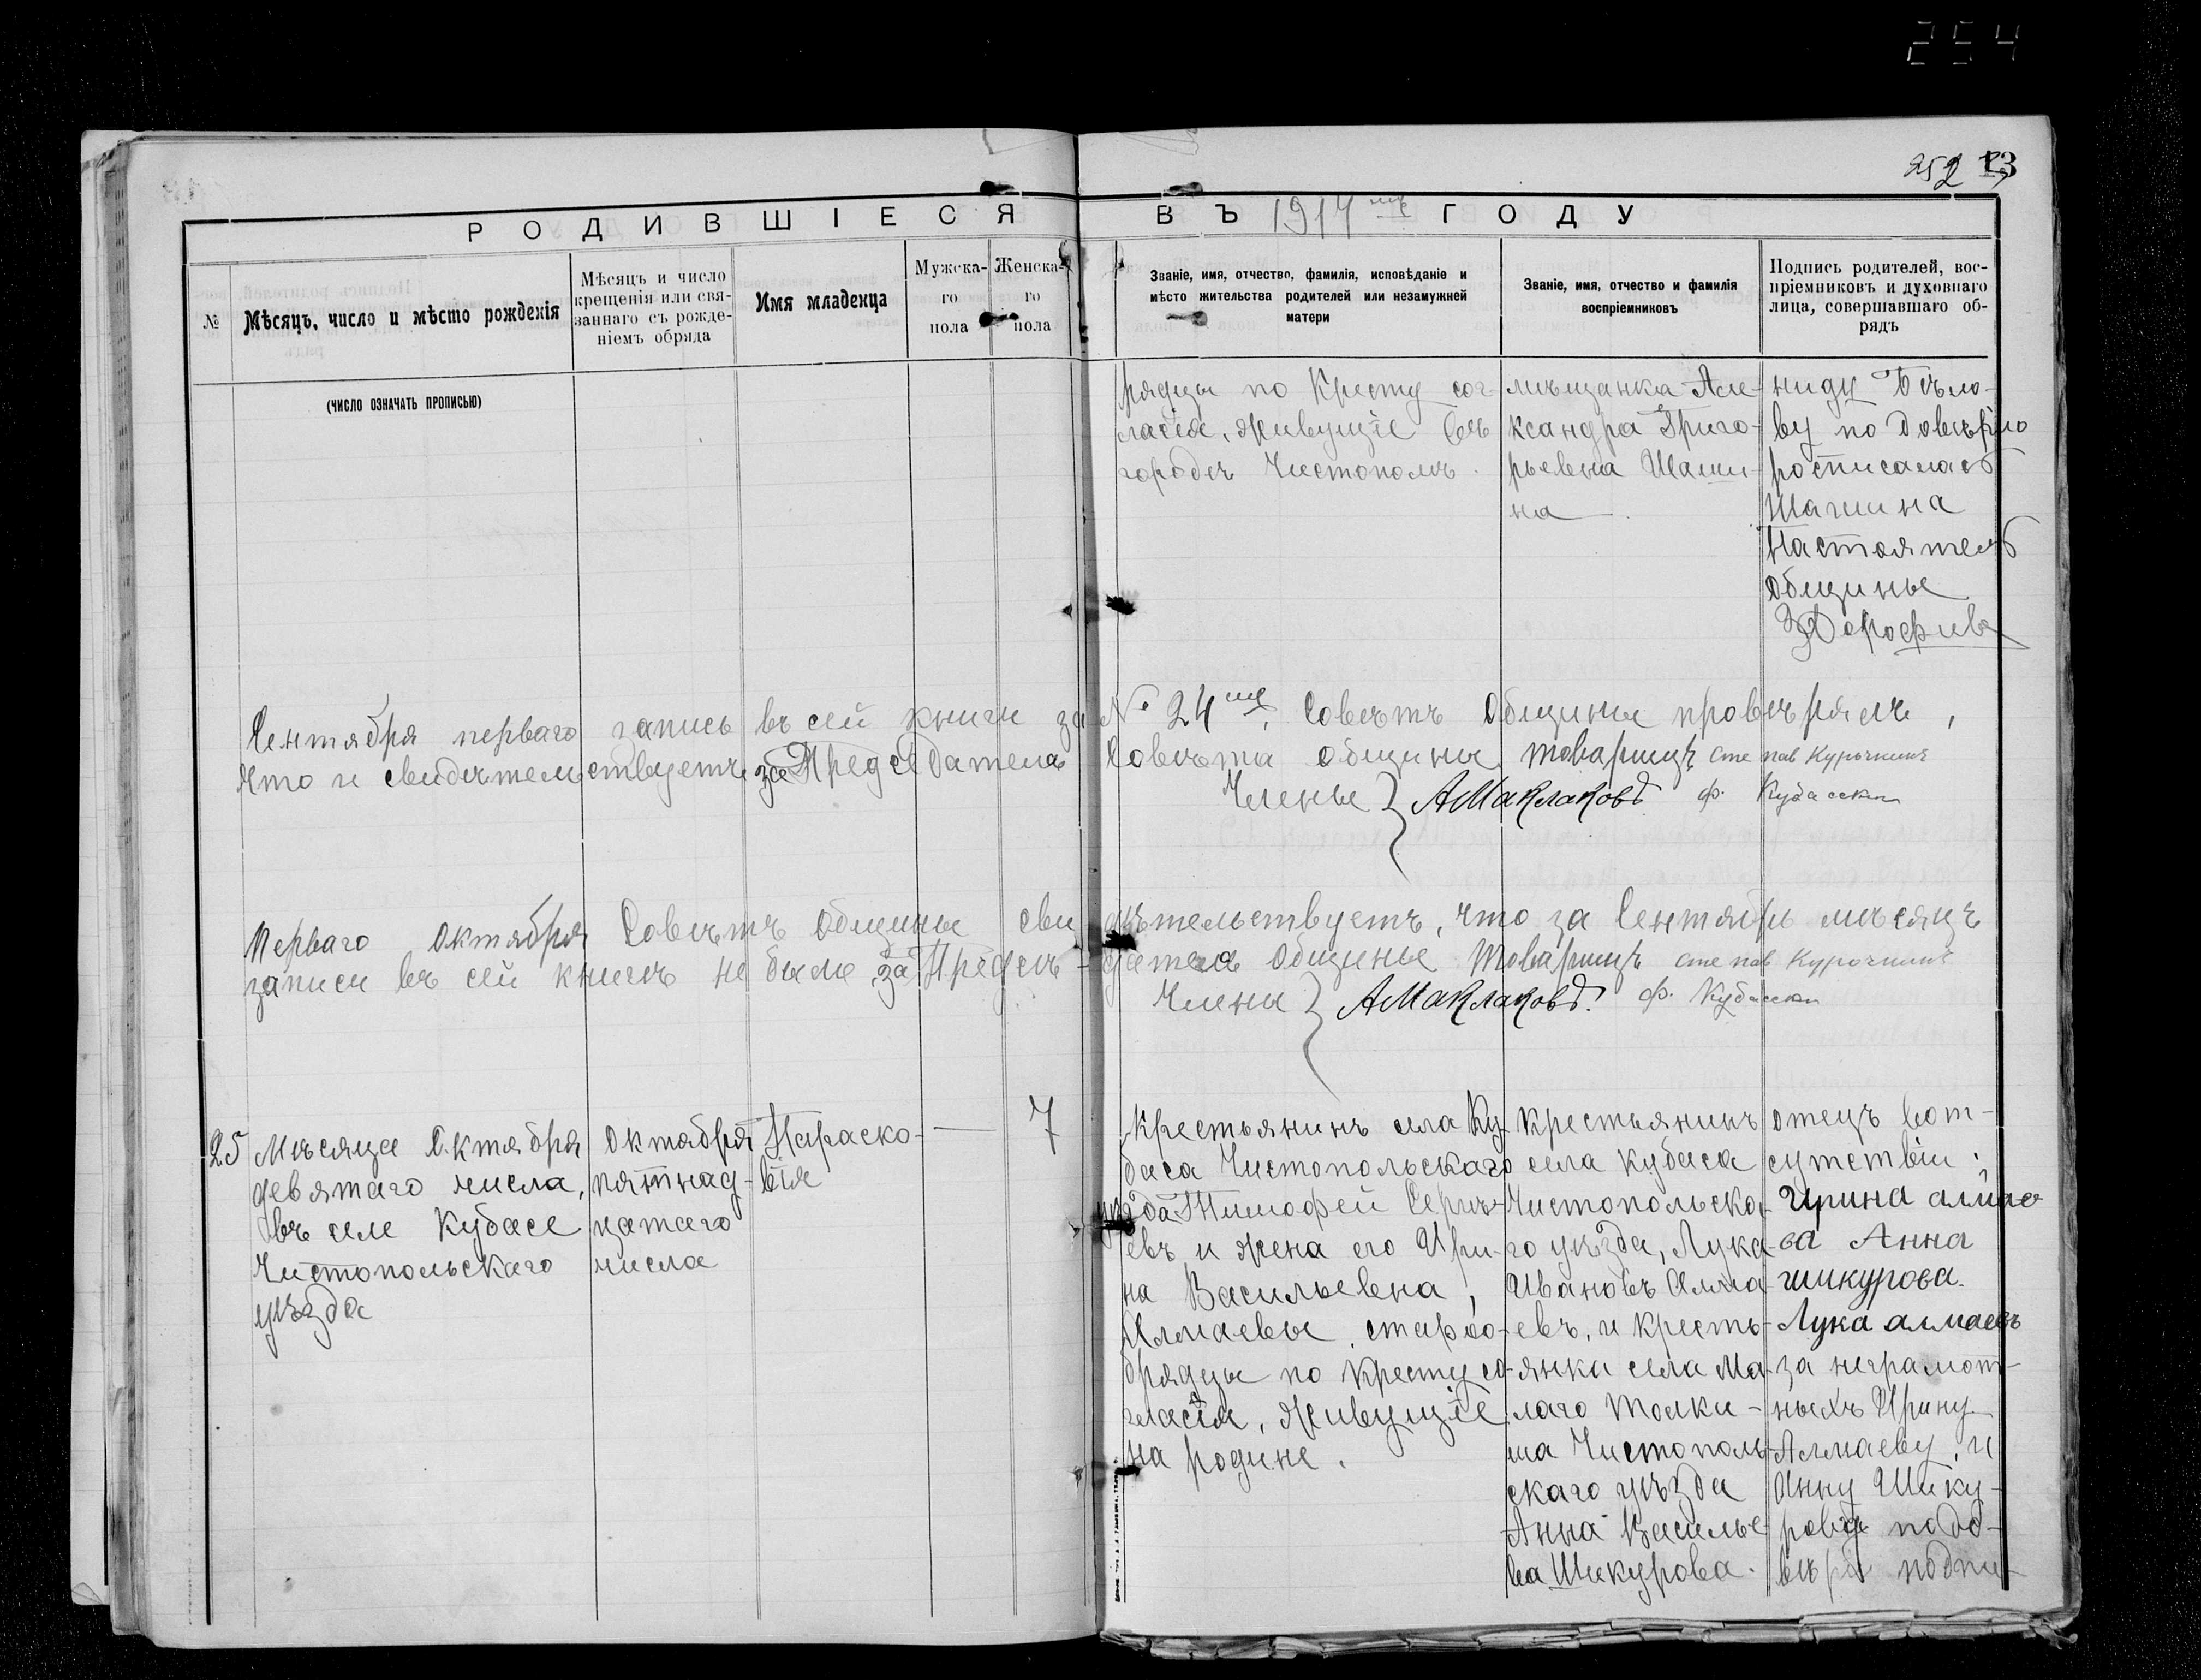 254
252 13
РОДИВШІЕСЯ ВЪ 1914 мъ ГОДУ
№
Мѣсяцъ, число и мѣсто рожденія
Мѣсяцъ и число
крещенія или свя-
заннаго съ рожде-
ніемъ обряда
Имя младенца
Мужска-
го
пола
Женска-
го
пола
Званіе, имя, отчество, фамилія, исповѣданіе и
мѣсто жительства родителей или незамужней
матери
Званіе, имя, отчество и фамилія
воспріемниковъ
Подпись родителей, вос-
пріемниковъ и духовнаго
лица, совершавшаго об-
рядъ
(ЧИСЛО ОЗНАЧАТЬ ПРОПИСЬЮ)
рядцы по Кресту сог-
ласія, живущіе въ
городѣ Чистополѣ.
мѣщанка Але-
ксандра Григо-
рьевна Шаши-
на
ниду Бѣло-
ву по довѣрію
росписалась
Шашина
Настоятель
Общины
Дорофив
Сентября перваго запись въ сей книги за № 24 Совѣтъ Общины провѣрялъ,
что и свидѣтельствуетъ за Председателя Совѣта общины товарищъ Степан Курочкинъ
Члены } АМаклаковъ ф. Кубасски
Перваго Октября Совѣтъ Общины свидѣтельствуетъ, что за Сентябрь мѣсяцъ
записи въ сей книгѣ не было за Предсѣ-дателя Общины Товарищъ степан Курочкинъ
Члены } АМаклаковъ. ф. Кубасски
25
Мѣсяца Октября
девятаго числа,
въ селе Кубасе
Чистопольскаго
уѣзда
Октября
пятнад-
цатаго
числа
Параско-
вія
—
7
Крестьянинъ села Ку-
баса Чистопольскаго
уѣзда Тимофей Сергѣ-
евъ и жена его Ири-
на Васильевна,
Алмаевы, старо-
брядцы по Кресту со-
гласія, живущіе
на родине.
Крестьянинъ
села Кубаса
Чистопольска-
го уѣзда, Лука
Ивановъ Алма-
евъ, и кресть-
янка села Ма-
лаго Толки-
ша Чистополь-
скаго уѣзда
Анна Василье-
ва Шикурова.
отецъ вот-
сутствіи;
Ирина алмае
ва Анна
шикурова.
Лука алмаевъ
за неграмот-
ныхъ Ирину
Алмаеву, и
Анну Шику-
рову по до-
вѣрі подпи-